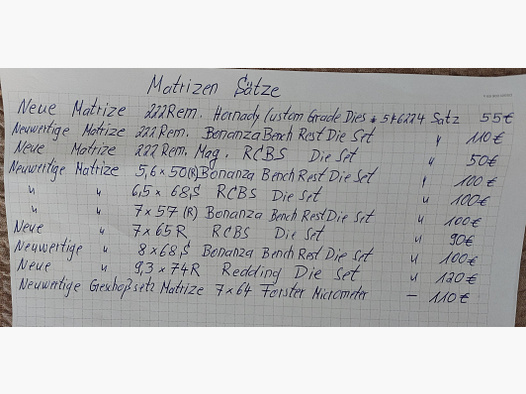 Matrizen Sätze
Neue Matrize 222 Rem. Hornady Custom Grade Dies Satz 55€
Neuwertige Matrize 222 Rem. Bonanza Bench Rest Die Set " 110€
Neue Matrize 222 Rem. Mag. RCBS Die Set " 50€
Neuwertige Matrize 5,6x50(R) Bonanza Bench Rest Die Set " 100€
" " 6,5x68,S RCBS Die Set " 100€
" " 7x57 (R) Bonanza Bench Rest Die Set " 100€
Neue " 7x65R RCBS Die Set " 90€
Neuwertige " 8x68,S Bonanza Bench Rest Die Set " 100€
Neue " 9,3x74R Redding Die Set " 120€
Neuwertige Geschoßsetz Matrize 7x64 Forster Micrometer – 110€